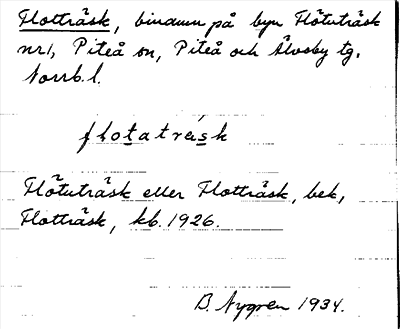 Flotträsk, binamn på byn Flötuträsk
nr 1, Piteå sn, Piteå och Älvsby tg,
Norrb. l.
flotatrásk
Flötuträsk eller Flotträsk, bek,
Flotträsk, kb. 1926.
B. Nygren 1934.